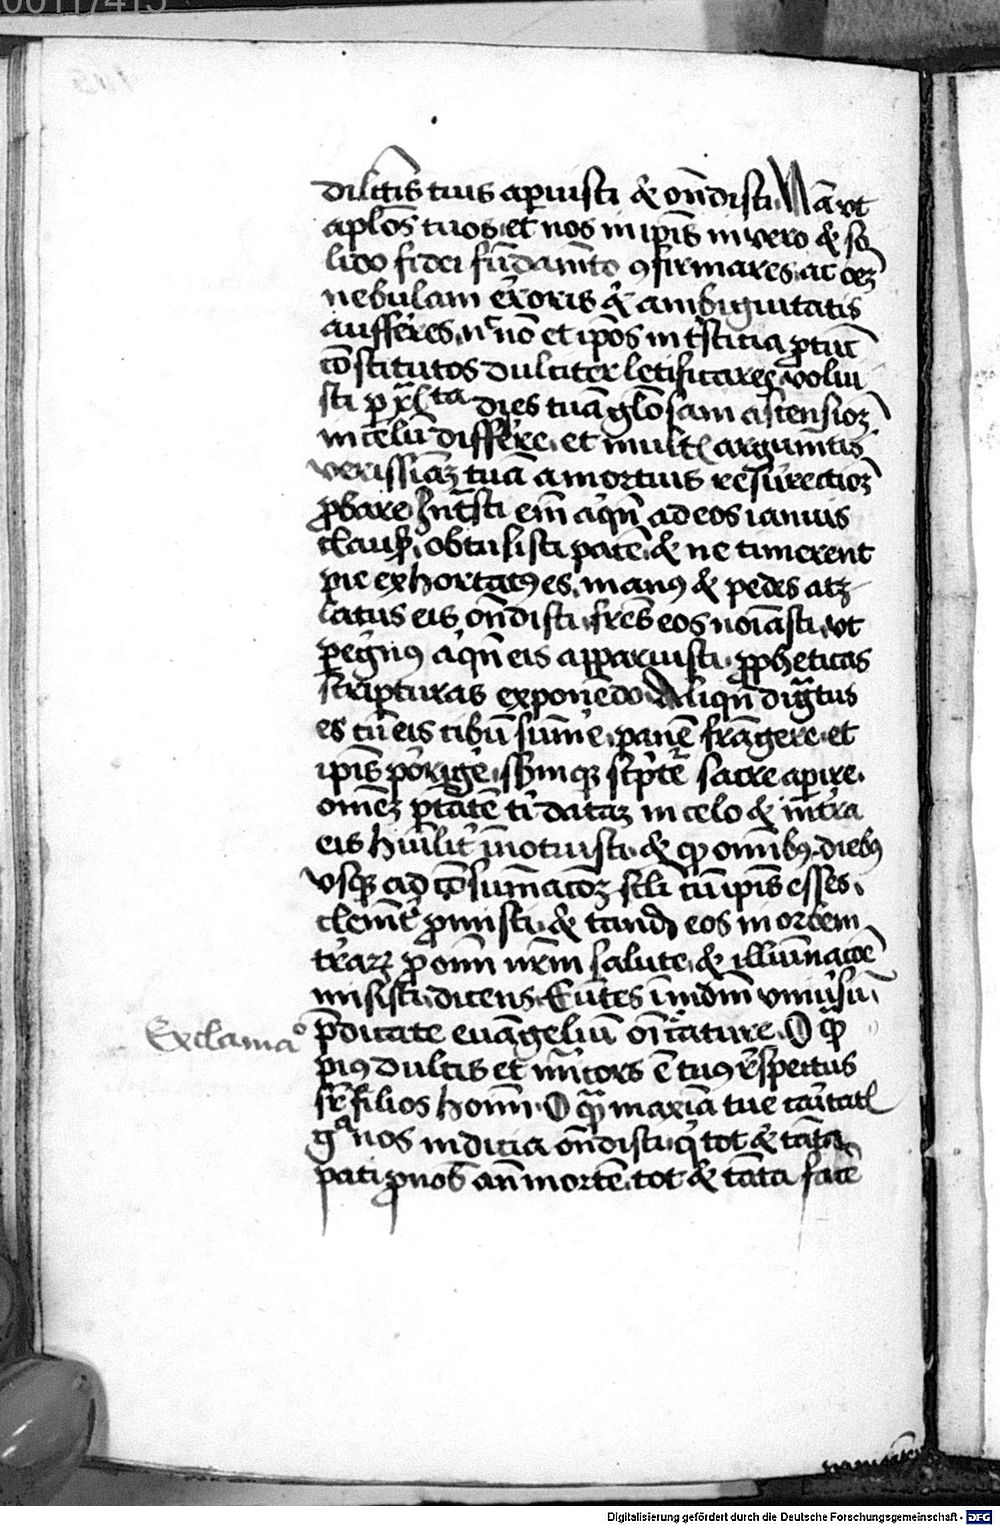 00117415
dilctis tuis apuisti & ondisti. Nā vt
aplos tuos et nos in ipis in vero & so
lido fidei fūdamēto 9firmares. ac oez
nebulam eroris & ambiguitatis
aufferes. nc nō et ipos in tsticia
cōstitutos dulciter letificares. volui
sti p xlta dies tuā glosam ascensioz
in celū differe. et mult argumtis
verissiāz tuā a mortuis resurectioz
pbare. Intsti em aqn ad eos ianuis
claus. obtulisti pacē. & ne timerent
pie exhortat9 es. man9 & pedes atz
latus eis ondisti. fres eos noiasti. vt
pegn9 aqn eis apparuisti. ppheticas
scripturas exponēdo. Aliqn digtus
es cū eis cibū sume. panē frāgere et
ipis porige. scptē sacre apire.
omez ptatē ti dataz in celo & in tra
eis huilit īnotuisti. & qp omib9 dieb9
vsq ad cōsumacōz scli cū ipis esses.
clemt pmisti. & tand eos in orbem
traz p omn nrm salute. & illuīnacōe
misisti. dicens. Eūtes ī mdm vniusū.
Exclamao
pdicate euāgeliū oi cature. O qp
pi9 dulcis et mīcors ē tu9 rspectus
sr filios homī. O qm maxīa tue caitatl
ga nos indicia ondisti. q tot & tāta
pati p nob an mortē. tot & tāta facē
Digitalisierung gefördert durch die Deutsche Forschungsgemeinschaft - DFG